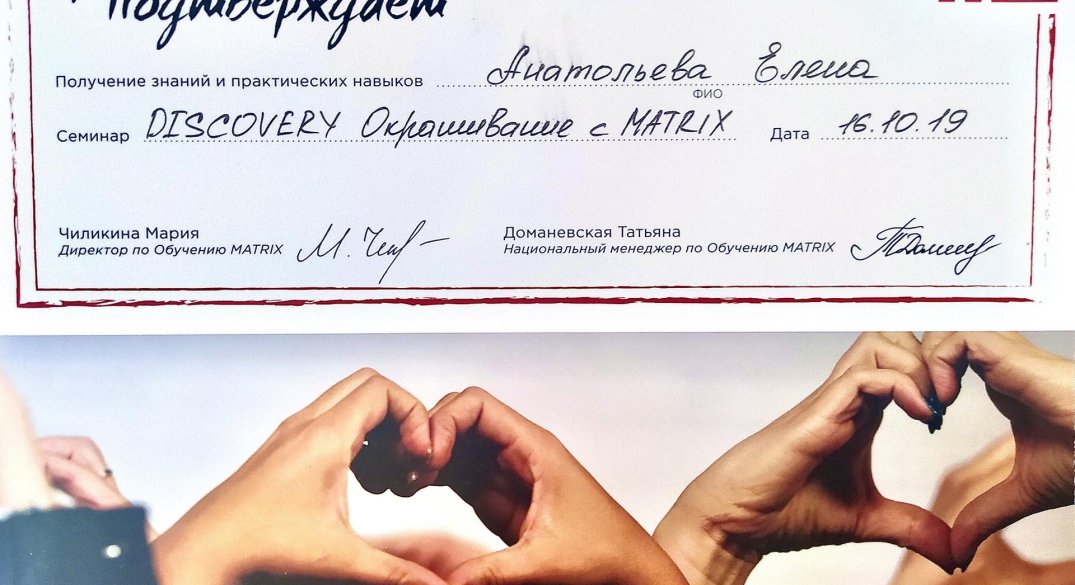 подтверждает
Получение знаний и практических навыков Анатольева Елена
ФИО
Семинар DISCOVERY Окрашивание с MATRIX Дата 16.10.19
Чиликина Мария Доманевская Татьяна
Директор по Обучению MATRIX М. Чил Национальный менеджер по Обучению MATRIX